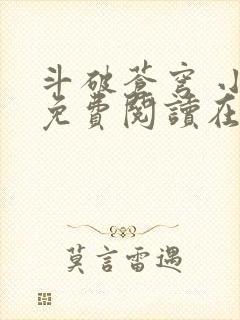 斗破蒼穹 小
免費閱讀在
莫言雷遇